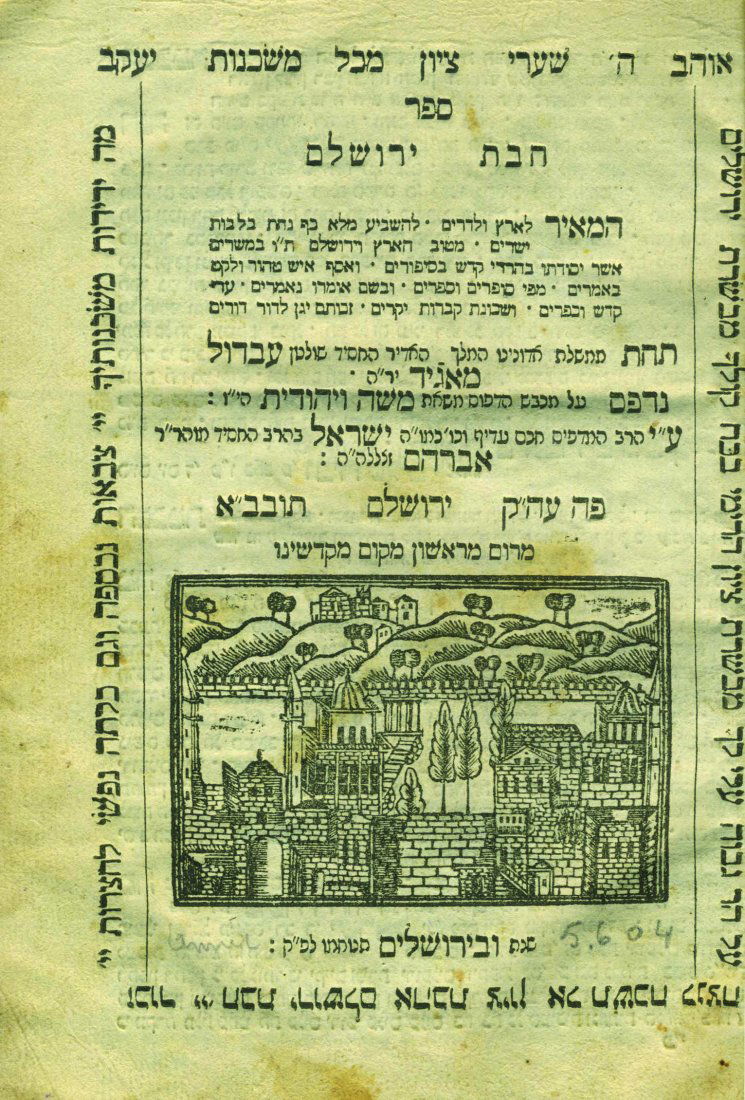 אוהב ה' שערי ציון מכל משכנות יעקב
ספר
חבת ירושלם
המאיר לארץ ולדרים · להשביע מלא כף נחת בלבות
ישרים · מטוב הארץ וירושלם ת"ו במשרים
אשר יסודתו בהררי קדש בסיפורים · ואסף איש טהור ולקט
באמרים · מפי סופרים וספרים · ובשם אומרו נאמרים · ערי
קדש וכפרים · ושכונת קברות יקרים · זכותם יגן לדור דורים
תחת ממשלת אדונינו המלך האדיר החסיד שולטן עבדול
מאגיד יר"ה ·
נדפס על מכבש הדפוס משאת משה ויהודית הי"ו :
ע"י הרב המדפיס חכם עדיף וכו' כמו"ה ישראל בהרב החסיד מוהר"ר
אברהם זללה"ה :
פה עה"ק ירושלם תובב"א
מרום מראשון מקום מקדשינו
שנת ובירושלים תנוחמו לפ"ק :
5.604
ירושלים מבשרת קולך בכח הרימי ציון מבשרת לך עלי גבוה הר על
זכור יי' חבת ירושלם אהבת ציון אל תשכח לנצח
מה ידידות משכנותיך יי' צבאות נכספה וגם כלתה נפשי לחצרות יי'